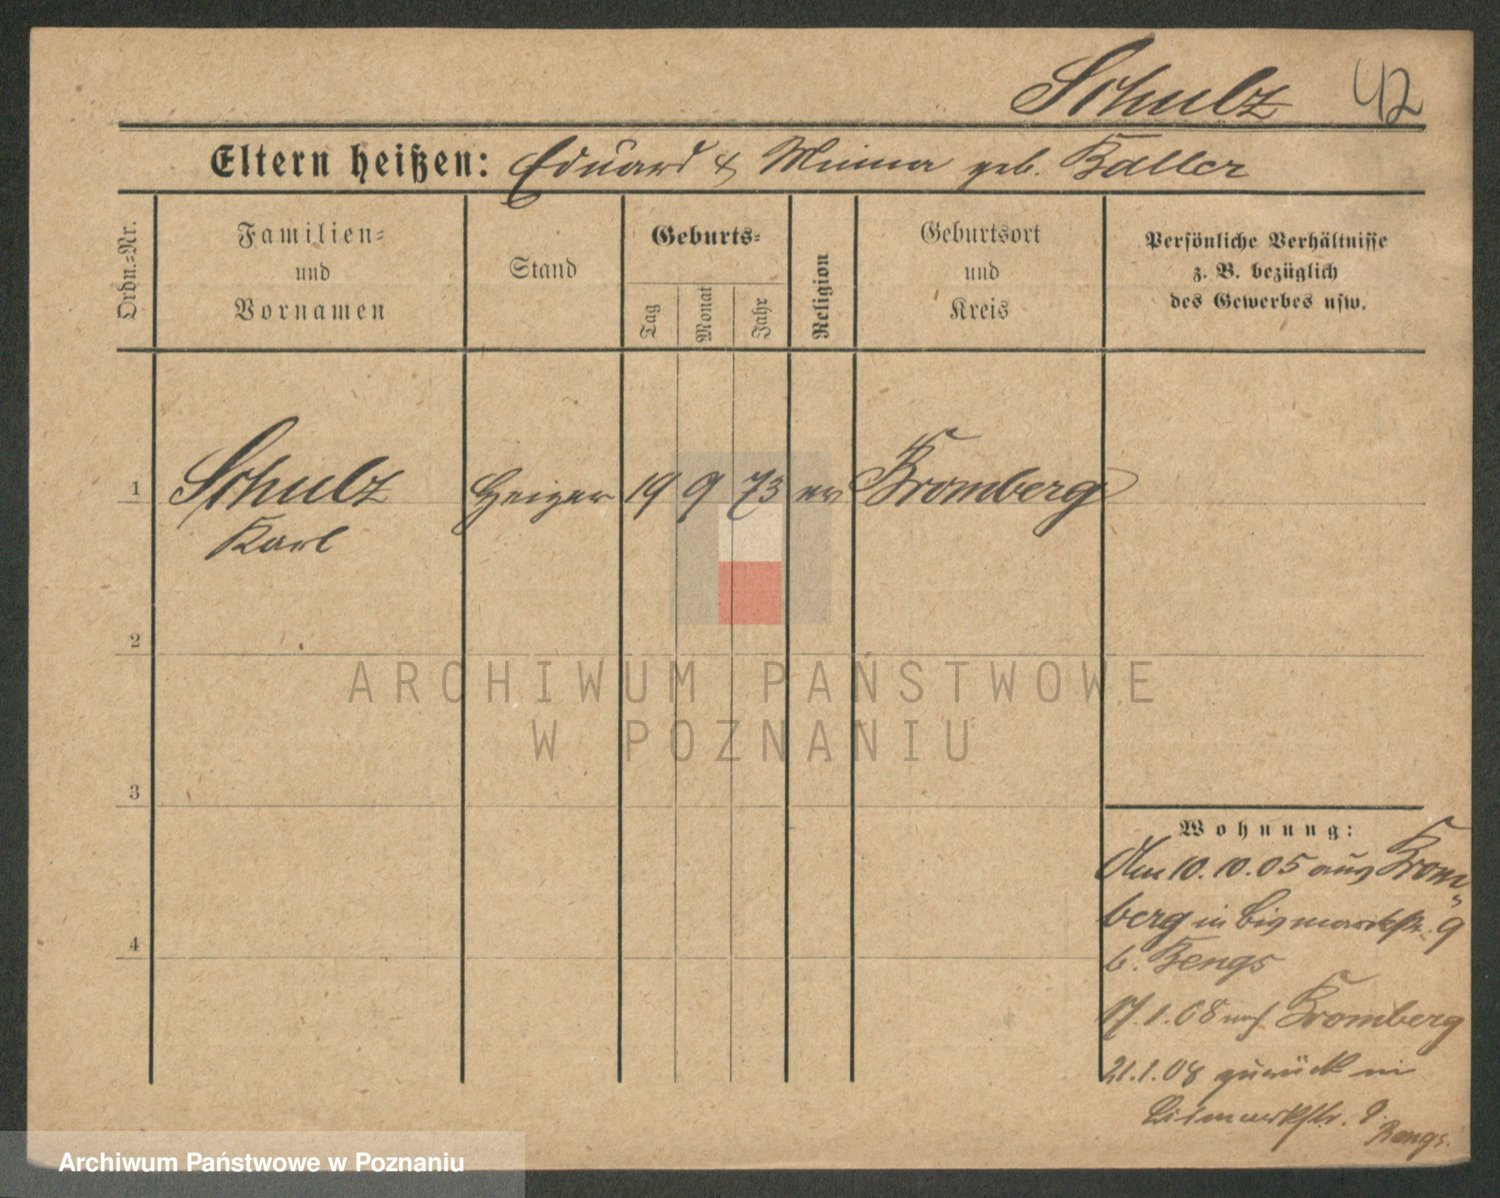 Schulz 42
Eltern heißen: Eduard & Minna geb. Baller
Ordn.=Nr.
Familien=
und
Vornamen
Stand
Geburts=
Tag
Monat
Jahr
Religion
Geburtsort
und
Kreis
Persönliche Verhältnisse
z. B. bezüglich
des Gewerbes usw.
1 Schulz Heizer 19 9 73 ev Bromberg
Karl
2
3
4
Wohnung:
Am 10.10.05 aus Brom
berg in Bismarckstr. 9
b. Bengs
17.1.08 nach Bromberg
21.1.08 zurück in
Bismarckstr. 9.
Bengs.
ARCHIWUM PAŃSTWOWE
W POZNANIU
Archiwum Państwowe w Poznaniu